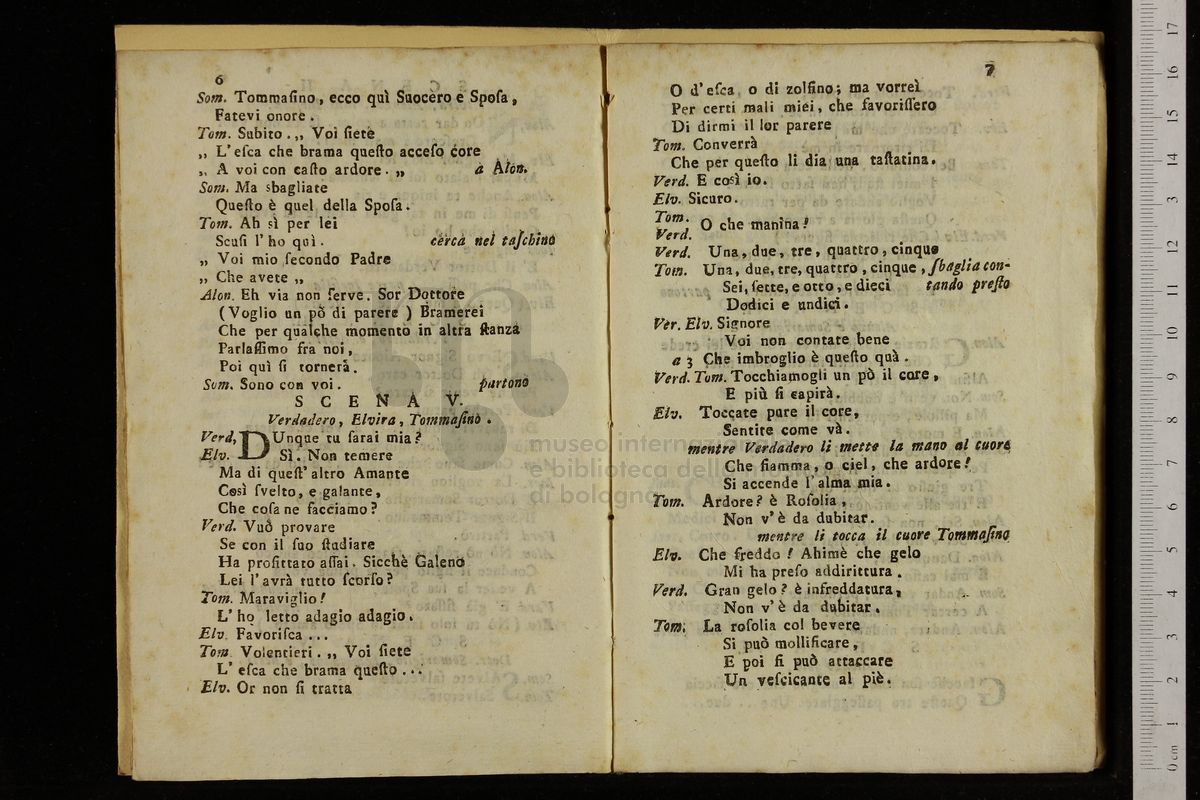 6
Som. Tommaſino, ecco quì Suocero e Spoſa,
Fatevi onore.
Tom. Subito. „ Voi ſiete
„ L'eſca che brama queſto acceſo core
„ A voi con caſto ardore. „ a Alon.
Som. Ma sbagliate
Queſto è quel della Spoſa.
Tom. Ah sì per lei
Scuſi l'ho quì. cerca nel taſchino
„ Voi mio ſecondo Padre
„ Che avete „
Alon. Eh via non ſerve. Sor Dottore
(Voglio un pò di parere) Bramerei
Che per qualche momento in altra ſtanza
Parlaſſimo fra noi,
Poi quì ſi tornerà.
Som. Sono con voi. partono
SCENA V.
Verdadero, Elvira, Tommaſino.
Verd, DUnque tu ſarai mia?
Elv. Sì. Non temere
Ma di queſt'altro Amante
Così ſvelto, e galante,
Che coſa ne facciamo?
Verd. Vuò provare
Se con il ſuo ſtudiare
Ha profittato aſſai. Sicchè Galeno
Lei l'avrà tutto ſcorſo?
Tom. Maraviglio!
L'ho letto adagio adagio.
Elv. Favoriſca ...
Tom Volentieri. „ Voi ſiete
L'eſca che brama queſto ...
Elv. Or non ſi tratta
7
O d'eſca, o di zolfino; ma vorrei
Per certi mali miei, che favoriſſero
Di dirmi il lor parere
Tom. Converrà
Che per queſto li dia una taſtatina.
Verd. E così io.
Elv. Sicuro.
Tom.
Verd. O che manina!
Verd. Una, due, tre, quattro, cinque
Tom. Una, due, tre, quattro, cinque, ſbaglia con-
Sei, ſette, e otto, e dieci tando preſto
Dodici e undici.
Ver. Elv. Signore
Voi non contate bene
a 3 Che imbroglio è queſto quà.
Verd. Tom. Tocchiamogli un pò il core,
E più ſi capirà.
Elv. Toccate pure il core,
Sentite come và.
mentre Verdadero li mette la mano al cuore
Che fiamma, o ciel, che ardore!
Si accende l'alma mia.
Tom. Ardore? è Roſolia,
Non v'è da dubitar.
mentre li tocca il cuore Tommaſino
Elv. Che freddo! Ahimè che gelo
Mi ha preſo addirittura.
Verd. Gran gelo? è infreddatura,
Non v'è da dubitar.
Tom. La roſolia col bevere
Si può mollificare,
E poi ſi può attaccare
Un veſcicante al piè.
museo internazionale
e biblioteca della musica
di bologna
0 cm 1 2 3 4 5 6 7 8 9 10 11 12 13 14 15 16 17